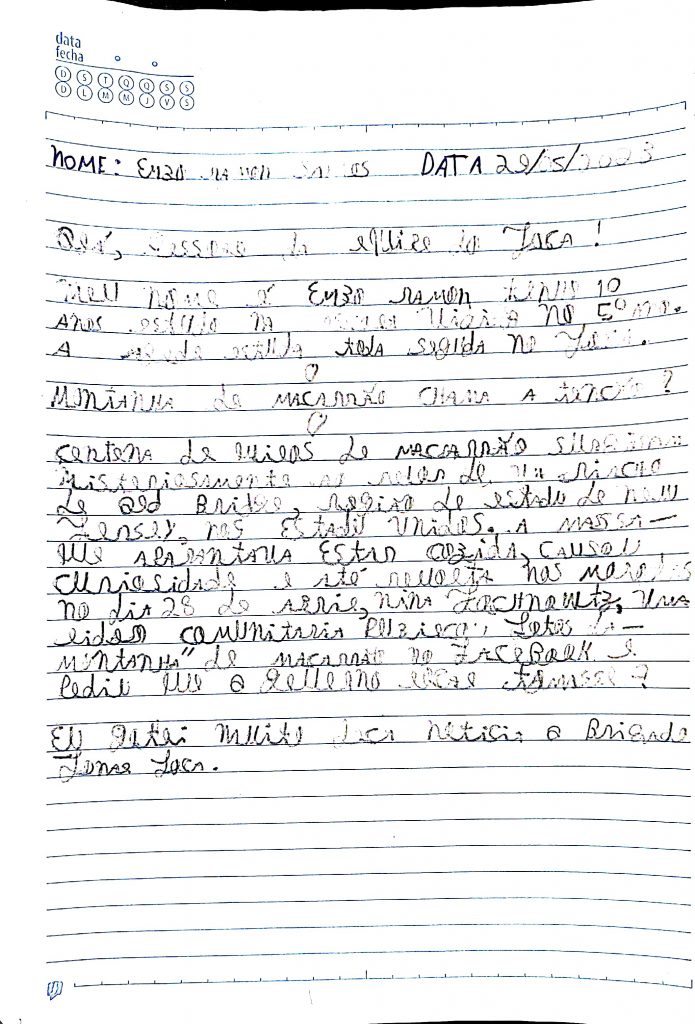 data
fecha
D S T Q Q S S
D L M M J V S
NOME: ENZO RAMON DATA 29/05/2023
Olá, pessoal da equipe do Joca!
Meu nome é ENZO RAMON tenho 10
anos estudo na no 5º ano.
A estuda toda seguda no Joca.
MONTANHA de MACARRÃO CHAMA A tencão?
centena de quilos de MACARRÃO
Misteriosamente ao redor de um riacho
de Old Bridge, região do estado de New
Jersey, nos ESTADU UNIDOS. A MASSA
que APARANTAVA ESTAR cozida, CAUSOU
curiosidade e até revolta nos
no dia 28 de abril, Nina Jochnowitz, uma
lider COMUNITARIA fotos da
montanha" de macarrão no FACEBOOK e
pediu que o governo local tomasse?
EU gotei muito da noticia o Brigado
Jonal Joca.